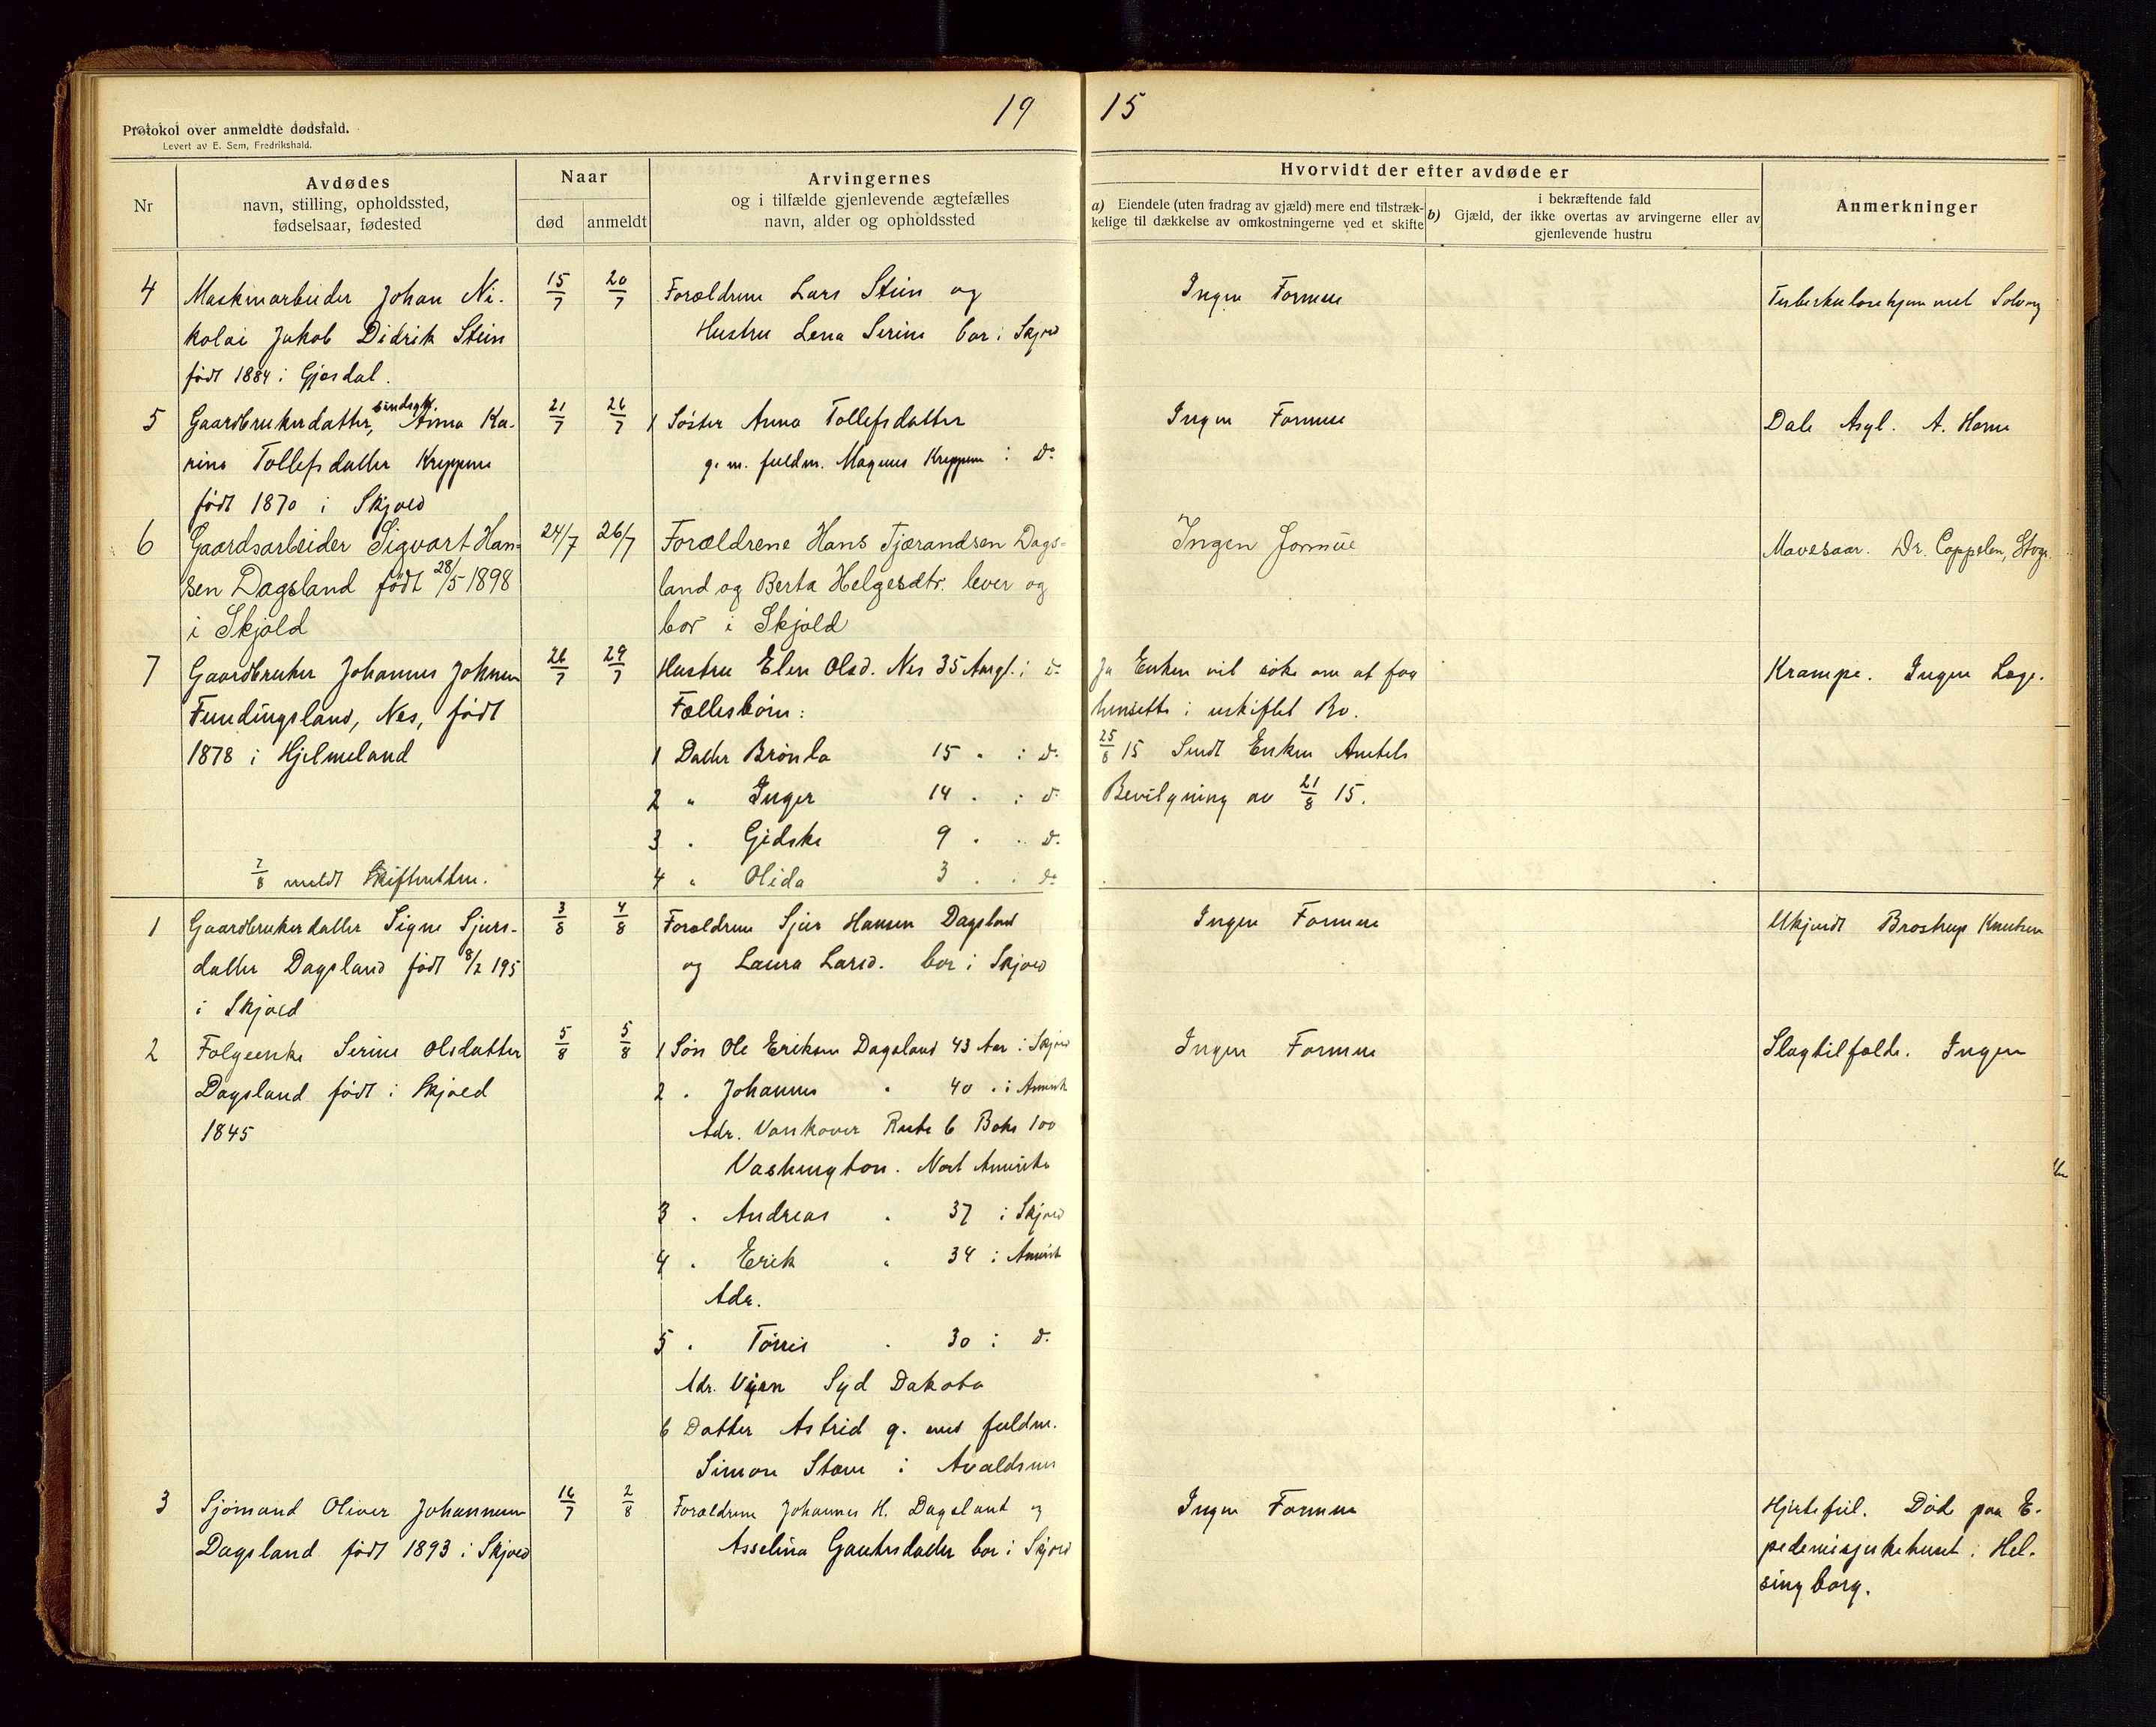 19 15
Protokol over anmeldte dødsfald.
Levert av E. Sem, Fredrikshald.
Nr
Avdødes
navn, stilling, opholdssted,
fødselsaar, fødested
Naar
død
anmeldt
Arvingernes
og i tilfælde gjenlevende ægtefælles
navn, alder og opholdssted
Hvorvidt der efter avdøde er
a) Eiendele (uten fradrag av gjæld) mere end tilstræk-
kelige til dækkelse av omkostningerne ved et skifte
i bekræftende fald
b) Gjæld, der ikke overtas av arvingerne eller av
gjenlevende hustru
Anmerkninger
4 Maskinarbeider Johan Ni- 15/7 20/7 Forældrene Lars Stein og Ingen Formue Tuberkulosehjemmet Solvang
kolai Jakob Didrik Stein Hustru Lena Serine bor i Skjold
født 1884 i Gjesdal.
5 Gaardbrukerdatter, sindssyk. Anna Ka- 21/7 26/7 1 Søster Anna Tollefsdatter Ingen Formue Dale Asyl. A.
rina Tollefsdatter Kreppene g. m. fuldm. Magnus Kreppene i do
født 1870 i Skjold
6 Gaardsarbeider Sigvart Han- 24/7 26/7 Forældrene Hans Tjærandsen Dags- Ingen Formue Mavesaar. Dr. Coppelen, Stvgr.
sen Dagsland født 28/5 1898 land og Berta Helgesdtr. lever og
i Skjold bor i Skjold
7 Gaardbruker Johannes Johnsen 26/7 29/7 Hustru Elen Olsd. Nes 35 Aargl. i do Ja Enken vil søke om at faa Krampe. Ingen Læge.
Fundingsland, Nes, født Fællesbørn: hensitte i uskiftet Bo.
1878 i Hjelmeland 1 Datter Brønla 15 " i do 25/8 15 Sendt Enken Amtets
2 " Inger 14 " i do Bevilgning av 21/8 15.
3 " Gidske 9 " " do
2/8 meldt Skifteretten. 4 " Olida 3 " " do
1 Gaardbrukerdatter Signe Sjurs- 3/8 4/8 Forældrene Sjur Hansen Dagsland Ingen Formue Ukjendt Brostrup Knudsen
datter Dagsland født 8/2 195 og Laura Larsd. bor i Skjold
i Skjold
2 Folgeenke Serine Olsdatter 5/8 5/8 1 Søn Ole Eriksen Dagsland 43 Aar i Skjold Ingen Formue Slagtilfælde. Ingen
Dagsland født i Skjold 2 " Johannes " 40 " i Amerik
1845 Adr. Vankover Rute 6 Boks 100
Vashington. Nort Amerika
3 " Andreas " 37 i Skjold
4 " Erik " 34 i Amerik
Adr.
5 " Tørres " 30 i do
Adr. Syd Dakota
6 Datter Astrid g. med fuldm.
Simon Stave i Avaldsnes
3 Sjømand Oliver Johannesen 16/7 2/8 Forældrene Johannes H. Dagsland og Ingen Formue Hjertefeil. Død paa E-
Dagsland født 1893 i Skjold Asselina Gautesdatter bor i Skjold pedemisjukehuset i Hel-
singborg.